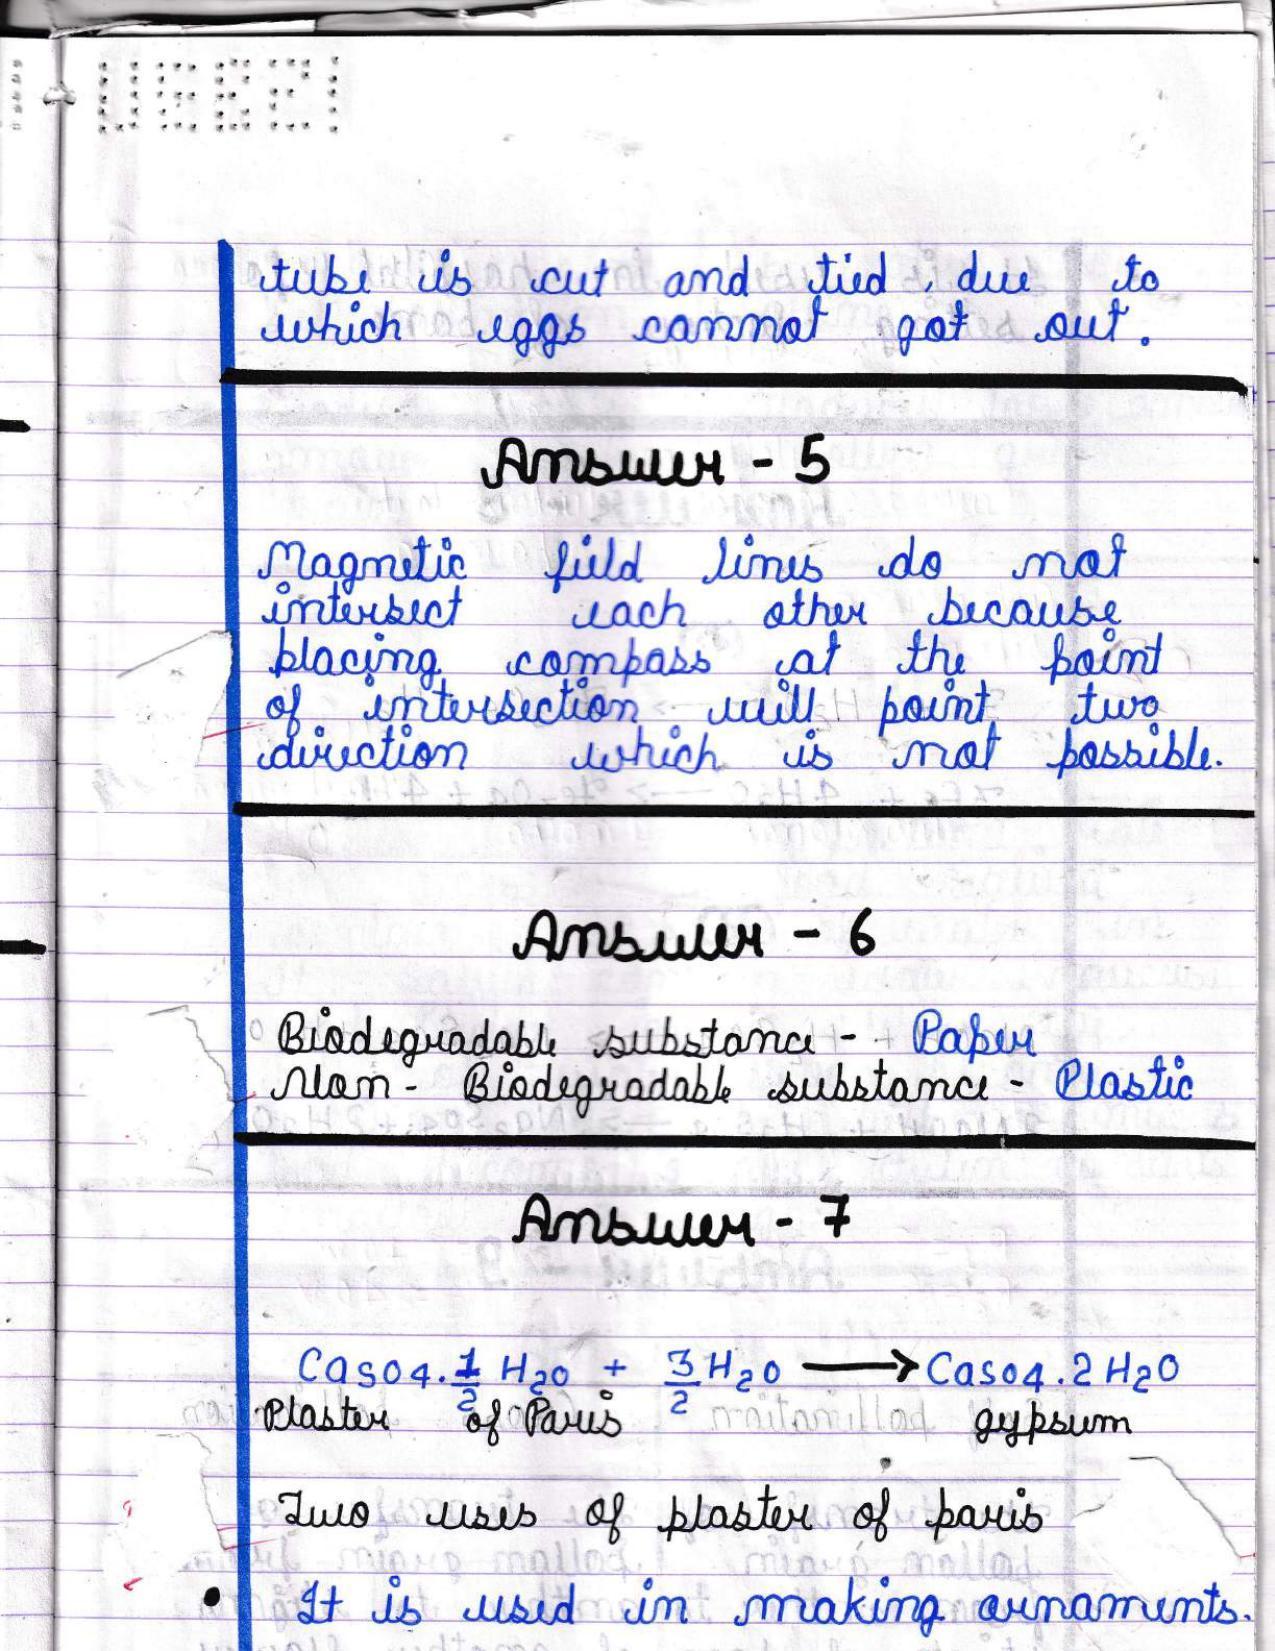 tube is cut and tied, due to
which eggs cannot got out.
Answer - 5
Magnetic field lines do not
intersect each other because
placing compass at the point
of intersection will point two
direction which is not possible.
Answer - 6
Biodegradable substance - Paper
Non - Biodegradable substance - Plastic
Answer - 7
CaSO4.1/2 H2O + 3/2 H2O → CaSO4.2H2O
Plaster of Paris gypsum
Two uses of plaster of paris
• It is used in making ornaments.